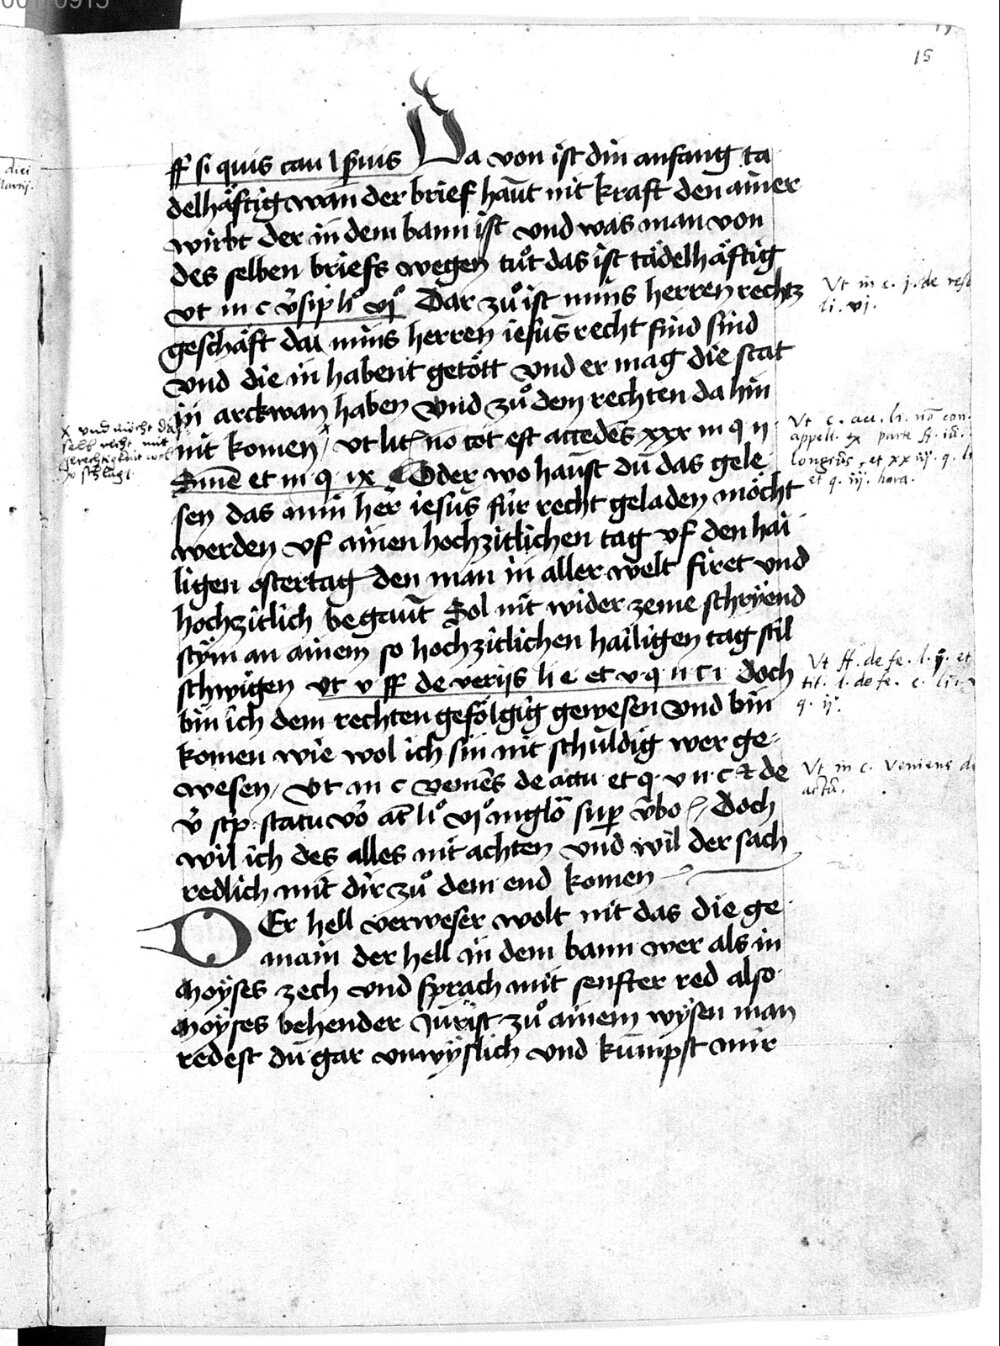 15
ff si quis cau l pͥuis Da von ist din anfang ta
delhäftig wann der brief haut nit kraft den ainer
wirbt der in dem bann ist vnd was man von
des selben briefs wegen tuͦt das ist tädelhäftig
vt in c Dar zuͦ ist mins herren rechtz
geschäft da mins herren iesus recht find sind
vnd die in habent getött vnd er mag die stat
in arckwan haben vnd zuͦ dem rechten da hin
nit komen vt lit no tot est accedens xxx iii q ii
et iii q ix Oder wo haust du das gele
sen das min her iesus für recht geladen möcht
werden vf ainen hochzitlichen tag vf den hai
ligen ostertag den man in aller welt firet vnd
hochzitlich begaut Sol nit wider zeme schryend
stym an ainem so hochzitlichen hailigen tag stil
schwigen vt v ff de verijs li e et v q ii c i doch
bin ich dem rechten gefölgig gewesen vnd bin
komen wie wol ich sin nit schuldig wer ge-
wesen vt in c veniens de accu et q v n c de
doch
wil ich des alles nit achten vnd wil der sach
redlich mit dir zuͦ dem end komen
DEr hell verweser wolt nit das die ge
main der hell in dem bann wer als in
moyses zech vnd sprach mit senfter red also
moyses behender Jurist zuͦ ainem wysen man
redest du gar vnwyslich vnd kumpst mir
x vnd möcht da
selb nicht mit
Vt in c. j. de
li. vj.
Vt c.
appell. ex parte
et q. iij. hora.
Vt ff. de fe. l.
q. ij.
Vt in c. Veniens de
accu.